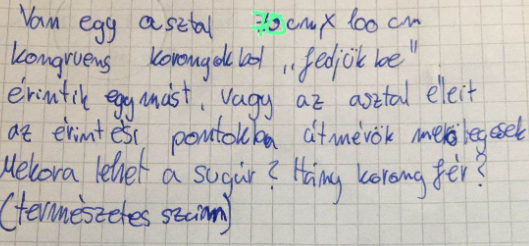 Van egy asztal 70 cm X 100 cm
kongruens korongokbol „fedjük be"
érintik egymást, vagy az asztal éleit
az érintési pontokba átmérők merőlegesek
Mekora lehet a sugár? Hány korong fér?
(természetes szám)